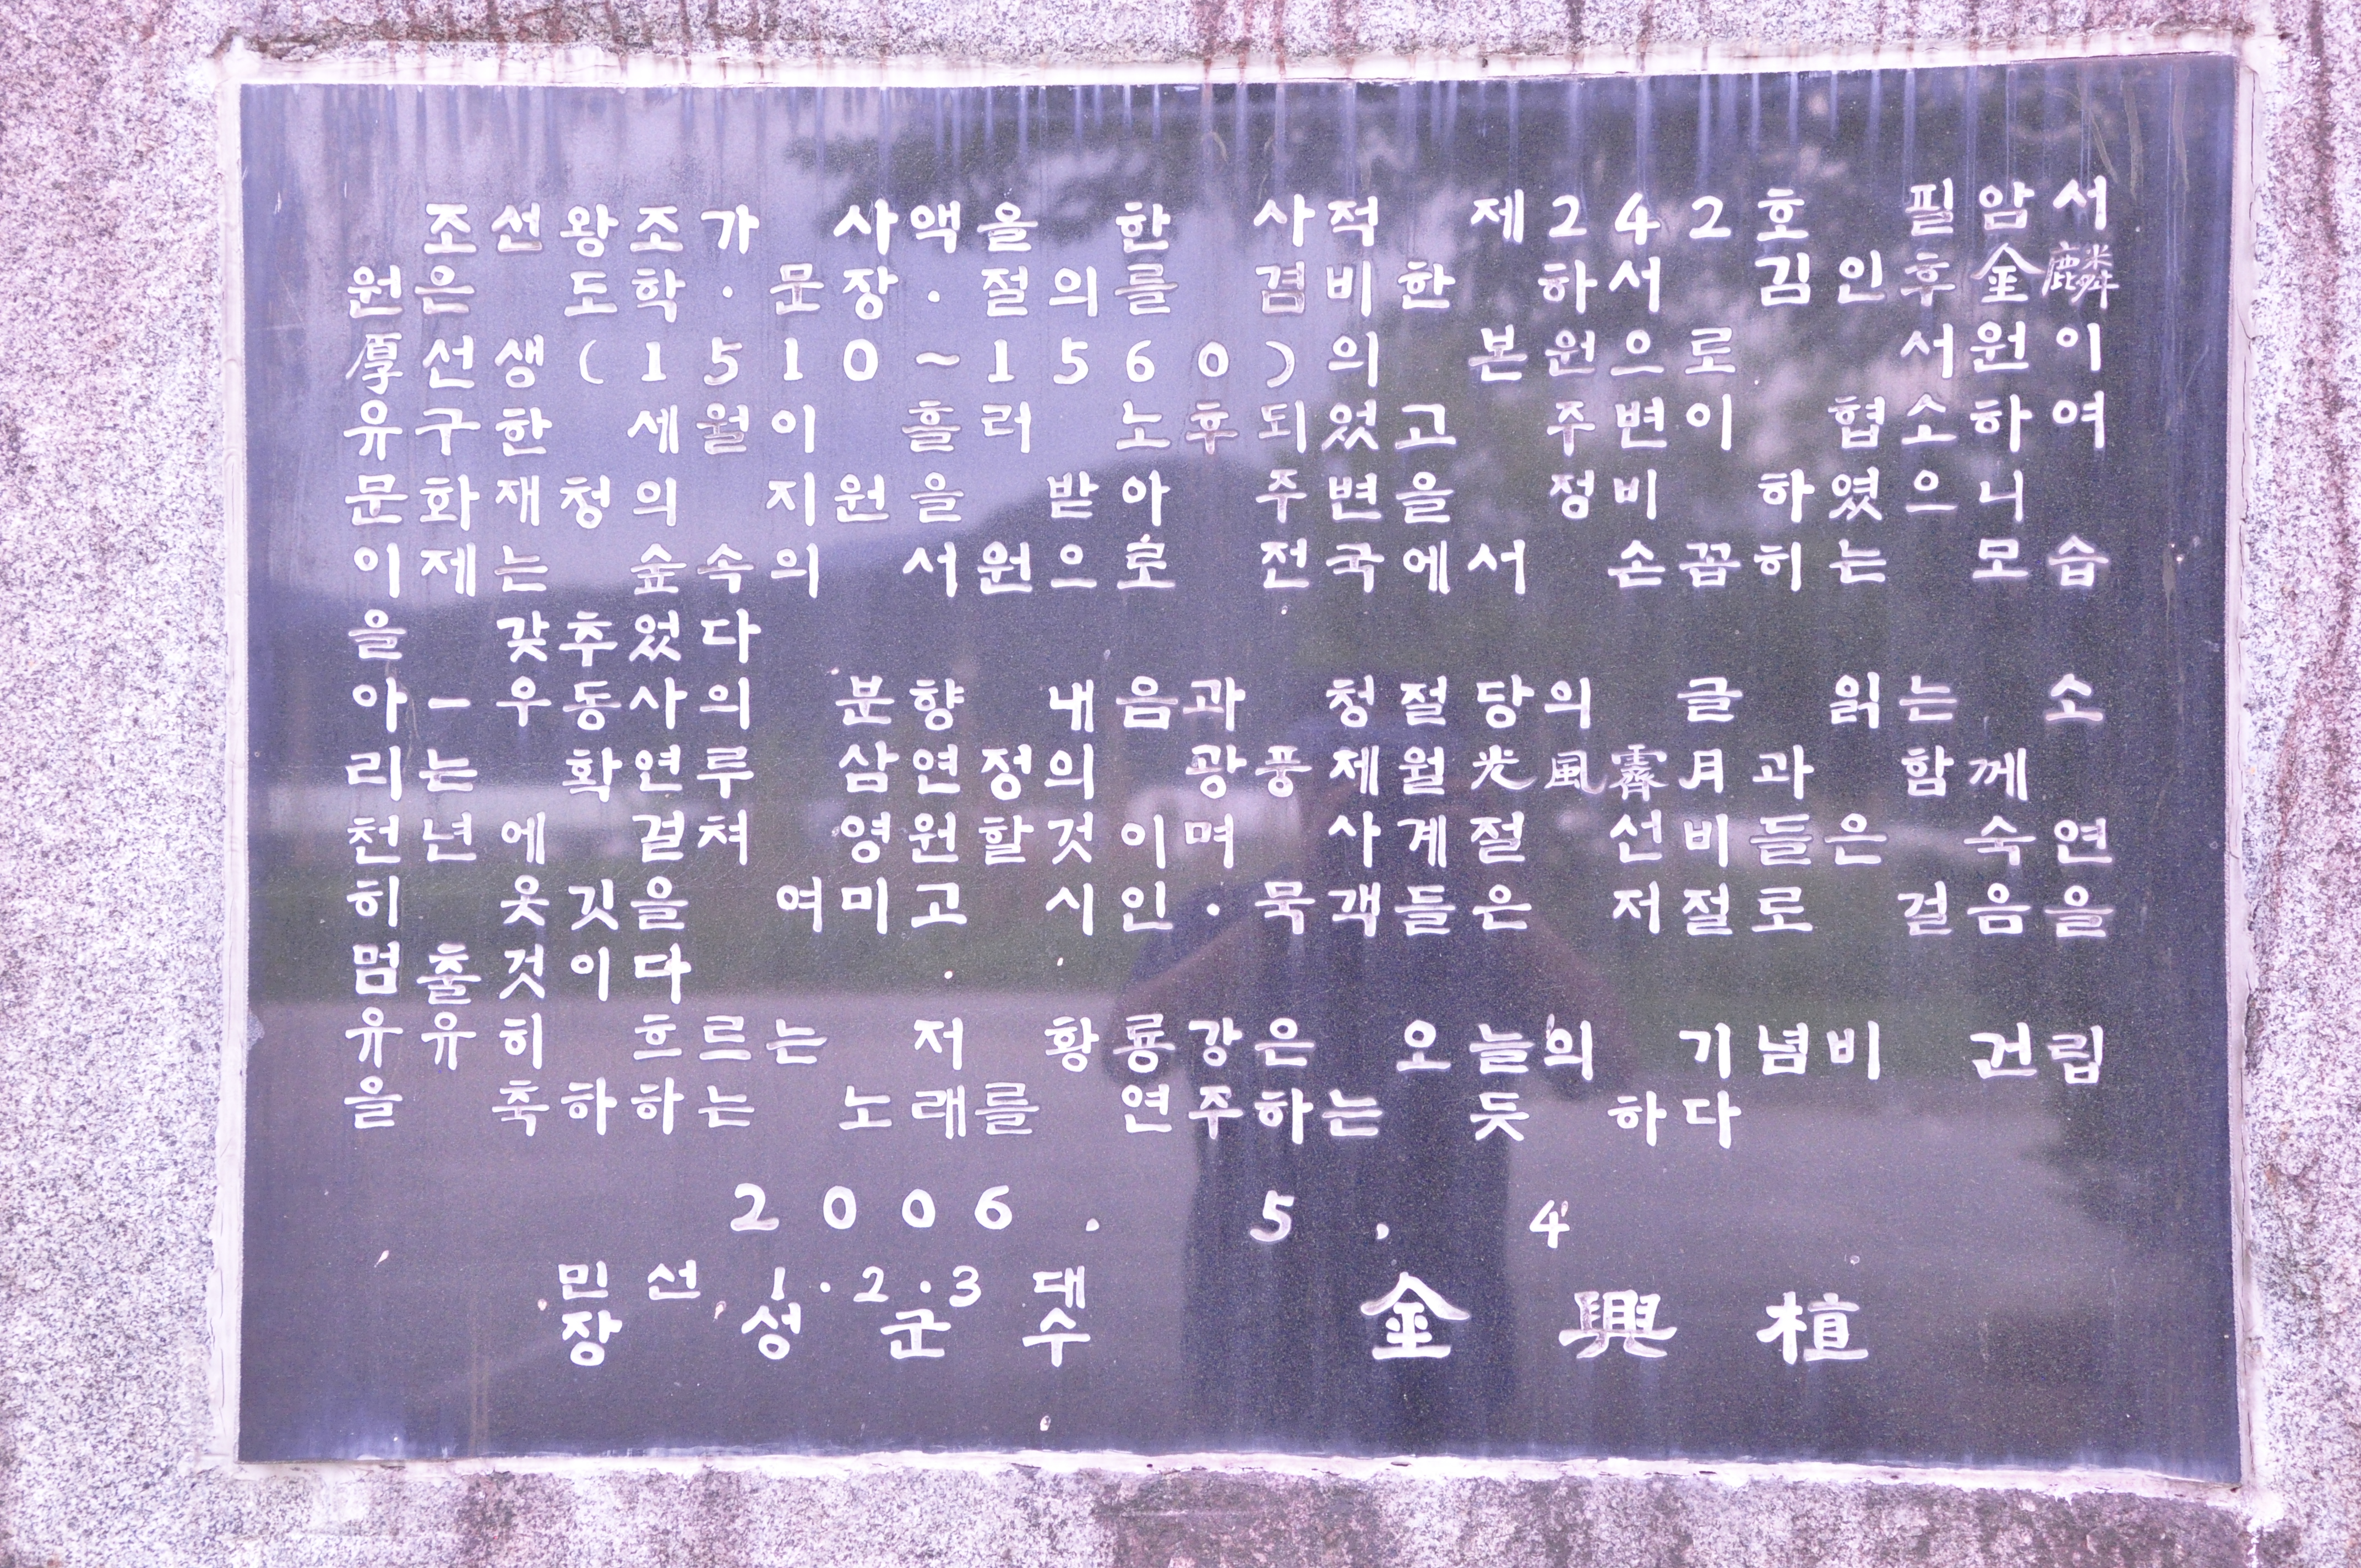 조선왕조가 사액을 한 사적 제242호 필암서
원은 도학·문장·절의를 겸비한 하서 김인후金麟
厚선생(1510~1560)의 본원으로 서원이
유구한 세월이 흘러 노후되었고 주변이 협소하여
문화재청의 지원을 받아 주변을 정비 하였으니
이제는 숲속의 서원으로 전국에서 손꼽히는 모습
을 갖추었다
아-우동사의 분향 내음과 청절당의 글 읽는 소
리는 확연루 삼연정의 광풍제월光風霽月과 함께
천년에 걸쳐 영원할것이며 사계절 선비들은 숙연
히 옷깃을 여미고 시인·묵객들은 저절로 걸음을
멈출것이다
유유히 흐르는 저 황룡강은 오늘의 기념비 건립
을 축하하는 노래를 연주하는 듯 하다
2006. 5. 4
민선 1·2·3대
장성군수 金興植